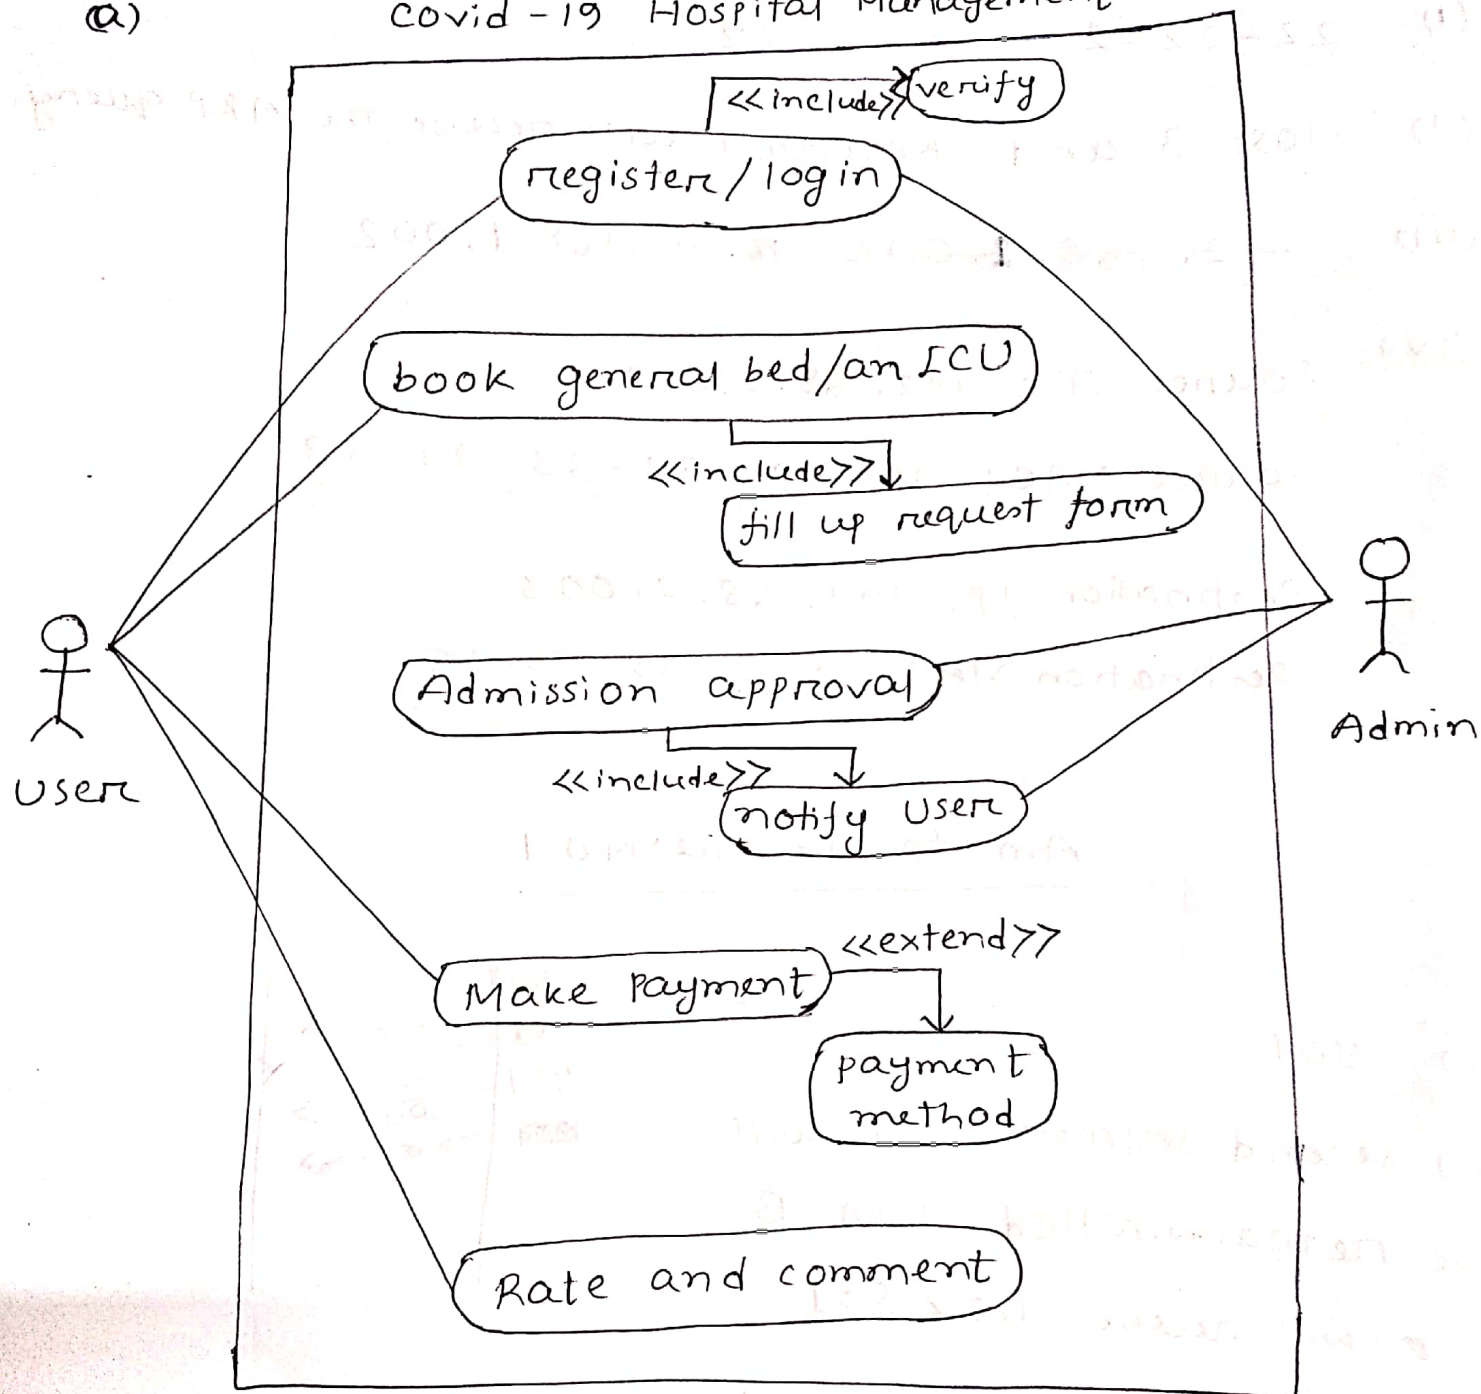 (a) Covid-19 Hospital Management
<<include>> verify
register/login
book general bed/an ICU
<<include>>
fill up request form
Admission approval
Admin
<<include>>
User
notify User
<<extend>>
Make Payment
payment
method
Rate and comment